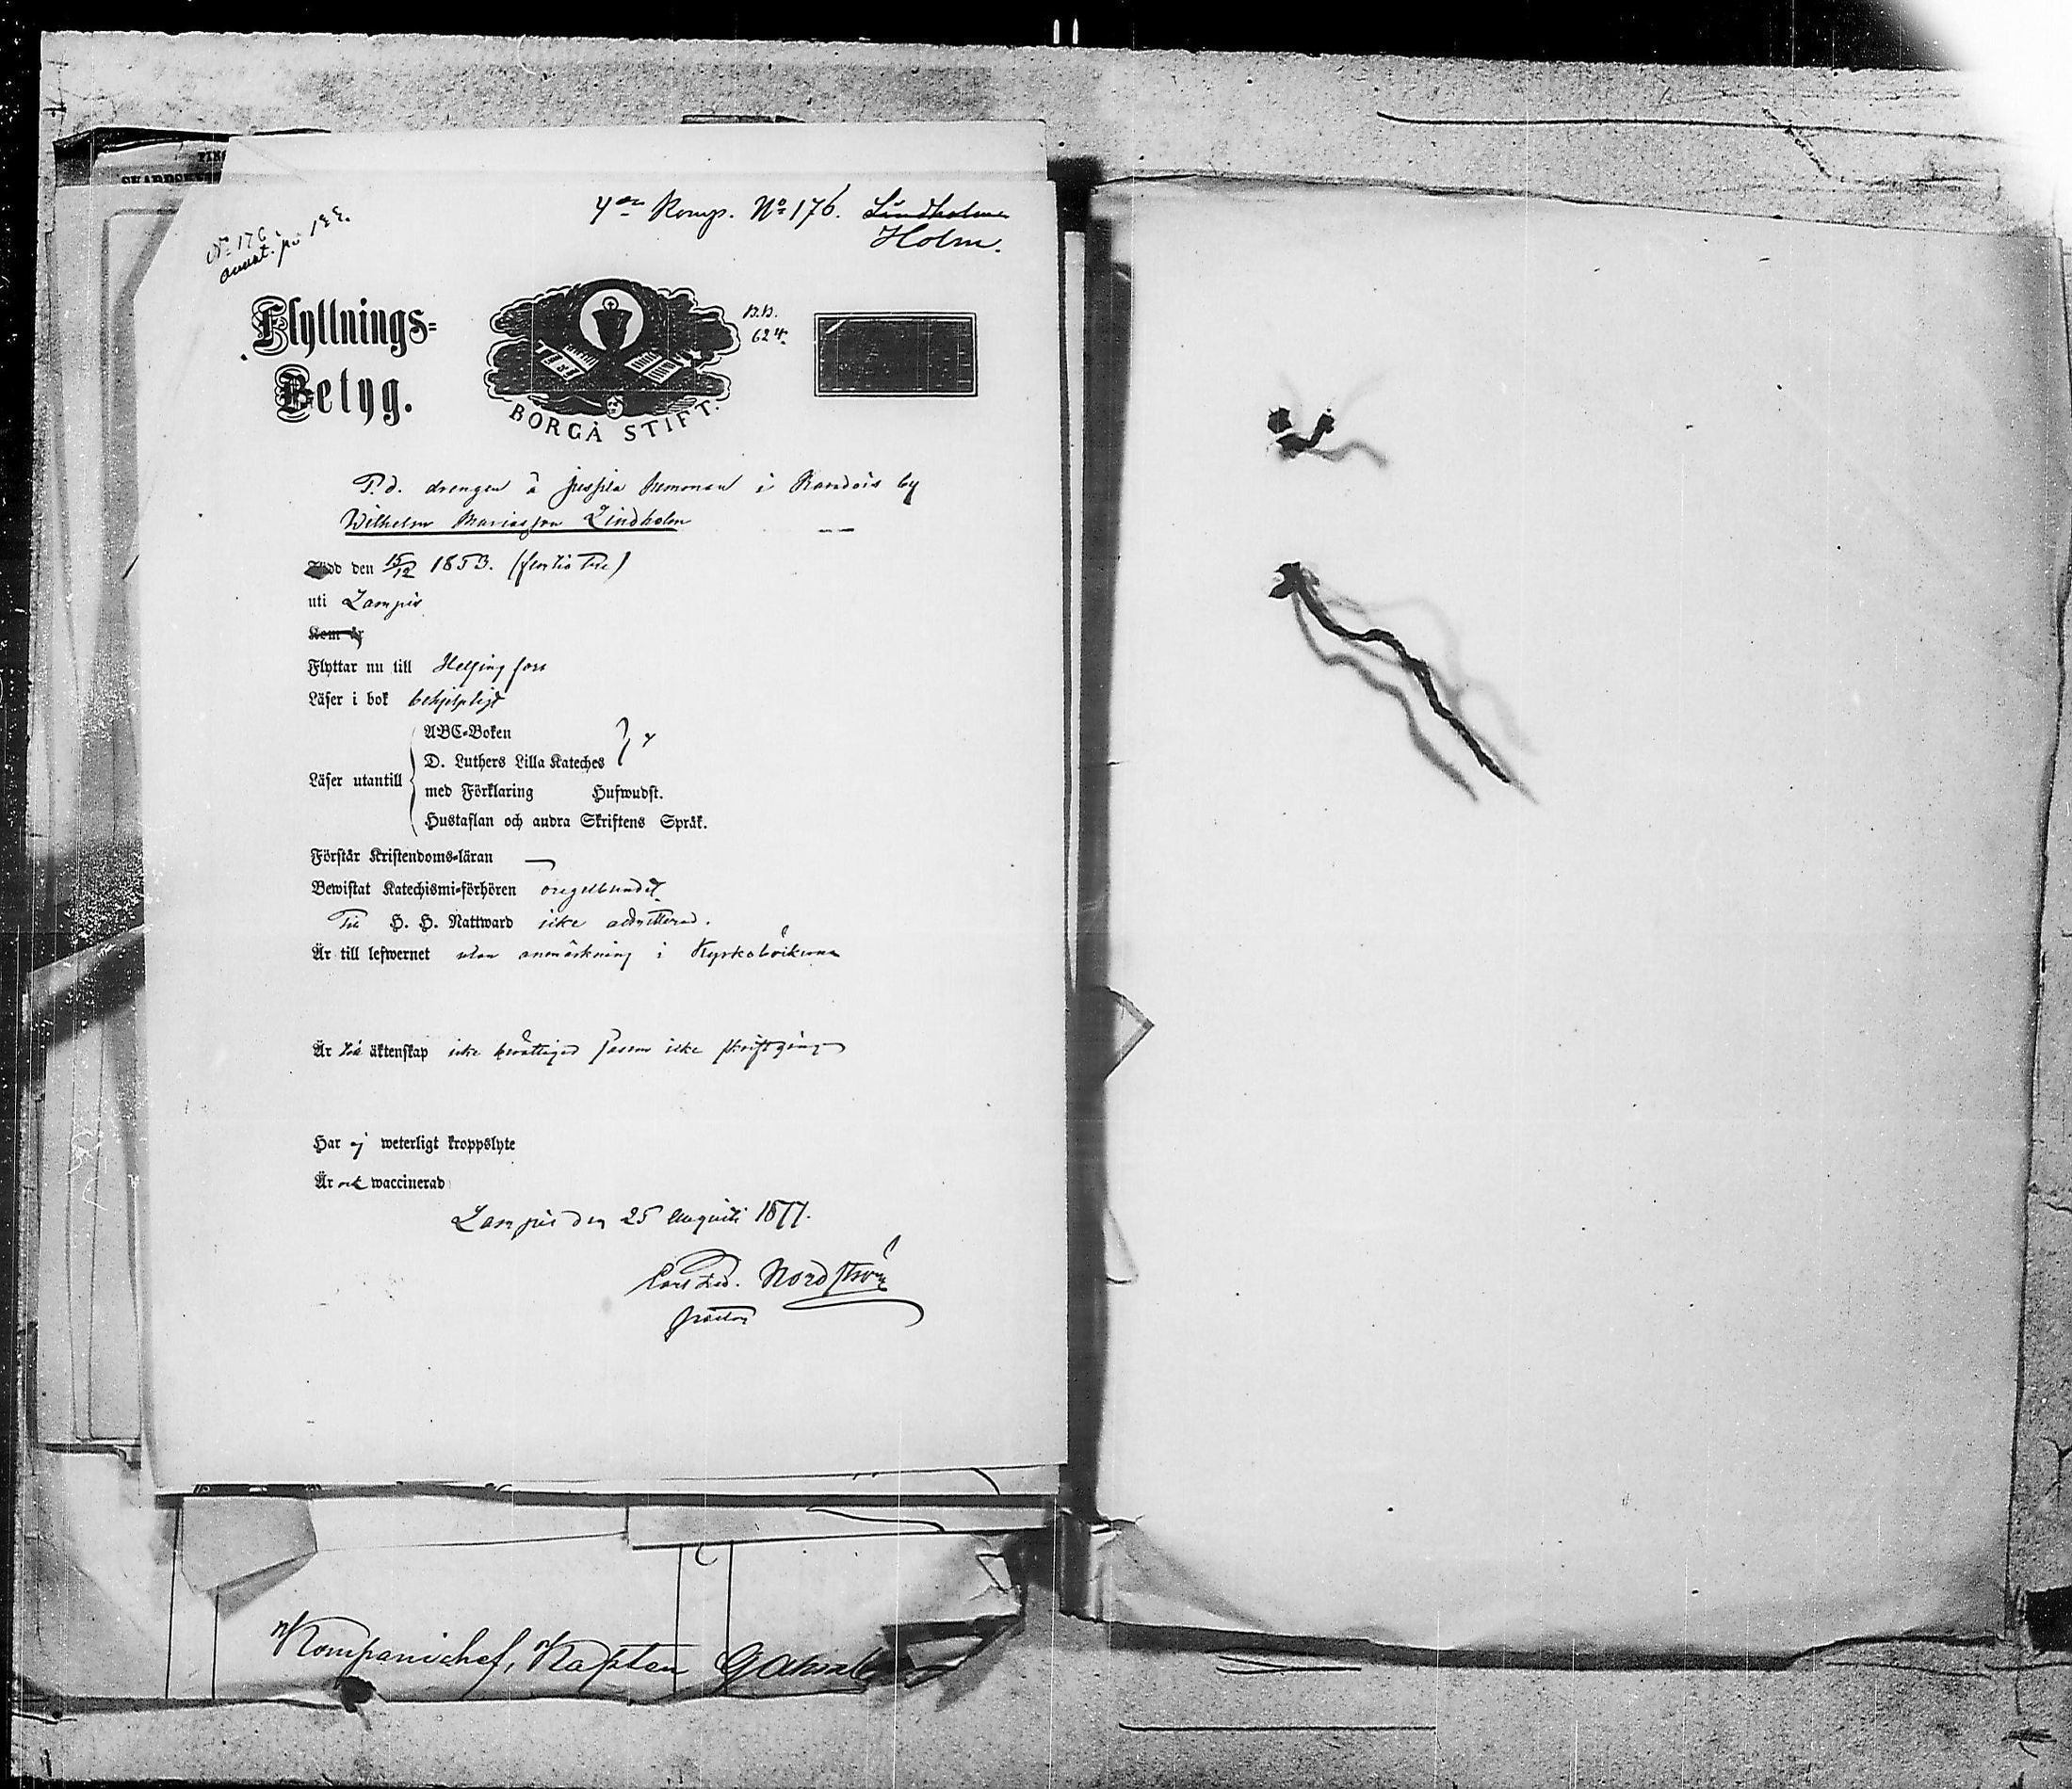 4de Komp. No 176. Lindholm
Holm.
No 176
annot. på 1
Flyttnings=
Betyg.
624
BORGÅ STIFT.
F.d. drengen å i by
Wilhelm Mariasson Lindholm
Född den 15/12 1853. (femtio tre)
uti Lampis
Kom år
Flyttar nu till Helsingfors
Läser i bok behjelpligt
Läser utantill
ABC=Boken
D. Luthers Lilla Kateches
med Förklaring Hufwudst.
Hustaflan och andra Skriftens Språk.
Förstår Kristendoms=läran —
Bewistat Katechismi=förhören oregelbundet
Till H. H. Nattward icke admitterad.
Är till lefwernet utan anmärkning i Kyrkoböckerna
Är till äktenskap icke berättigad såsom icke skriftgången
Har ej weterligt kroppslyte
Är ock waccinerad
Lampis den 25 Augusti 1877.
Nordström
Kompanichef, Kapten